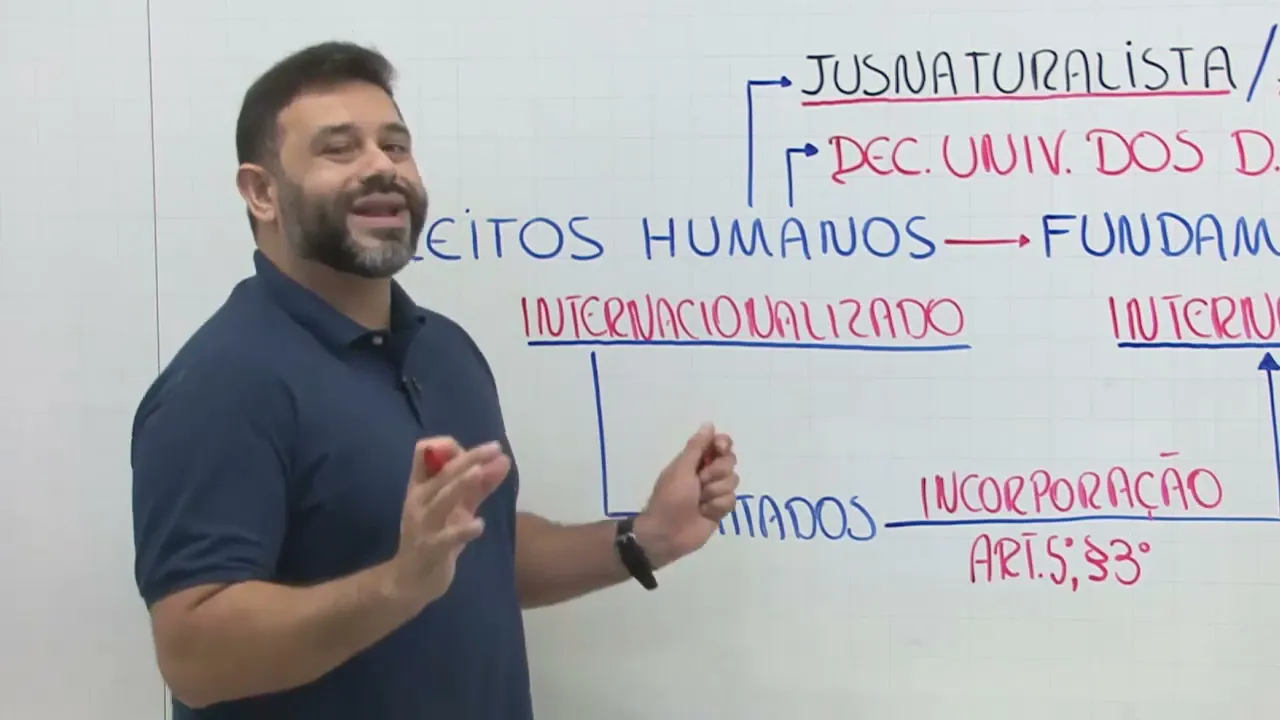 JUSNATURALISTA /
DEC. UNIV. DOS D.
EITOS HUMANOS → FUNDAM
INTERNACIONALIZADO INTERN
TADOS INCORPORAÇÃO
ART. 5º, §3º